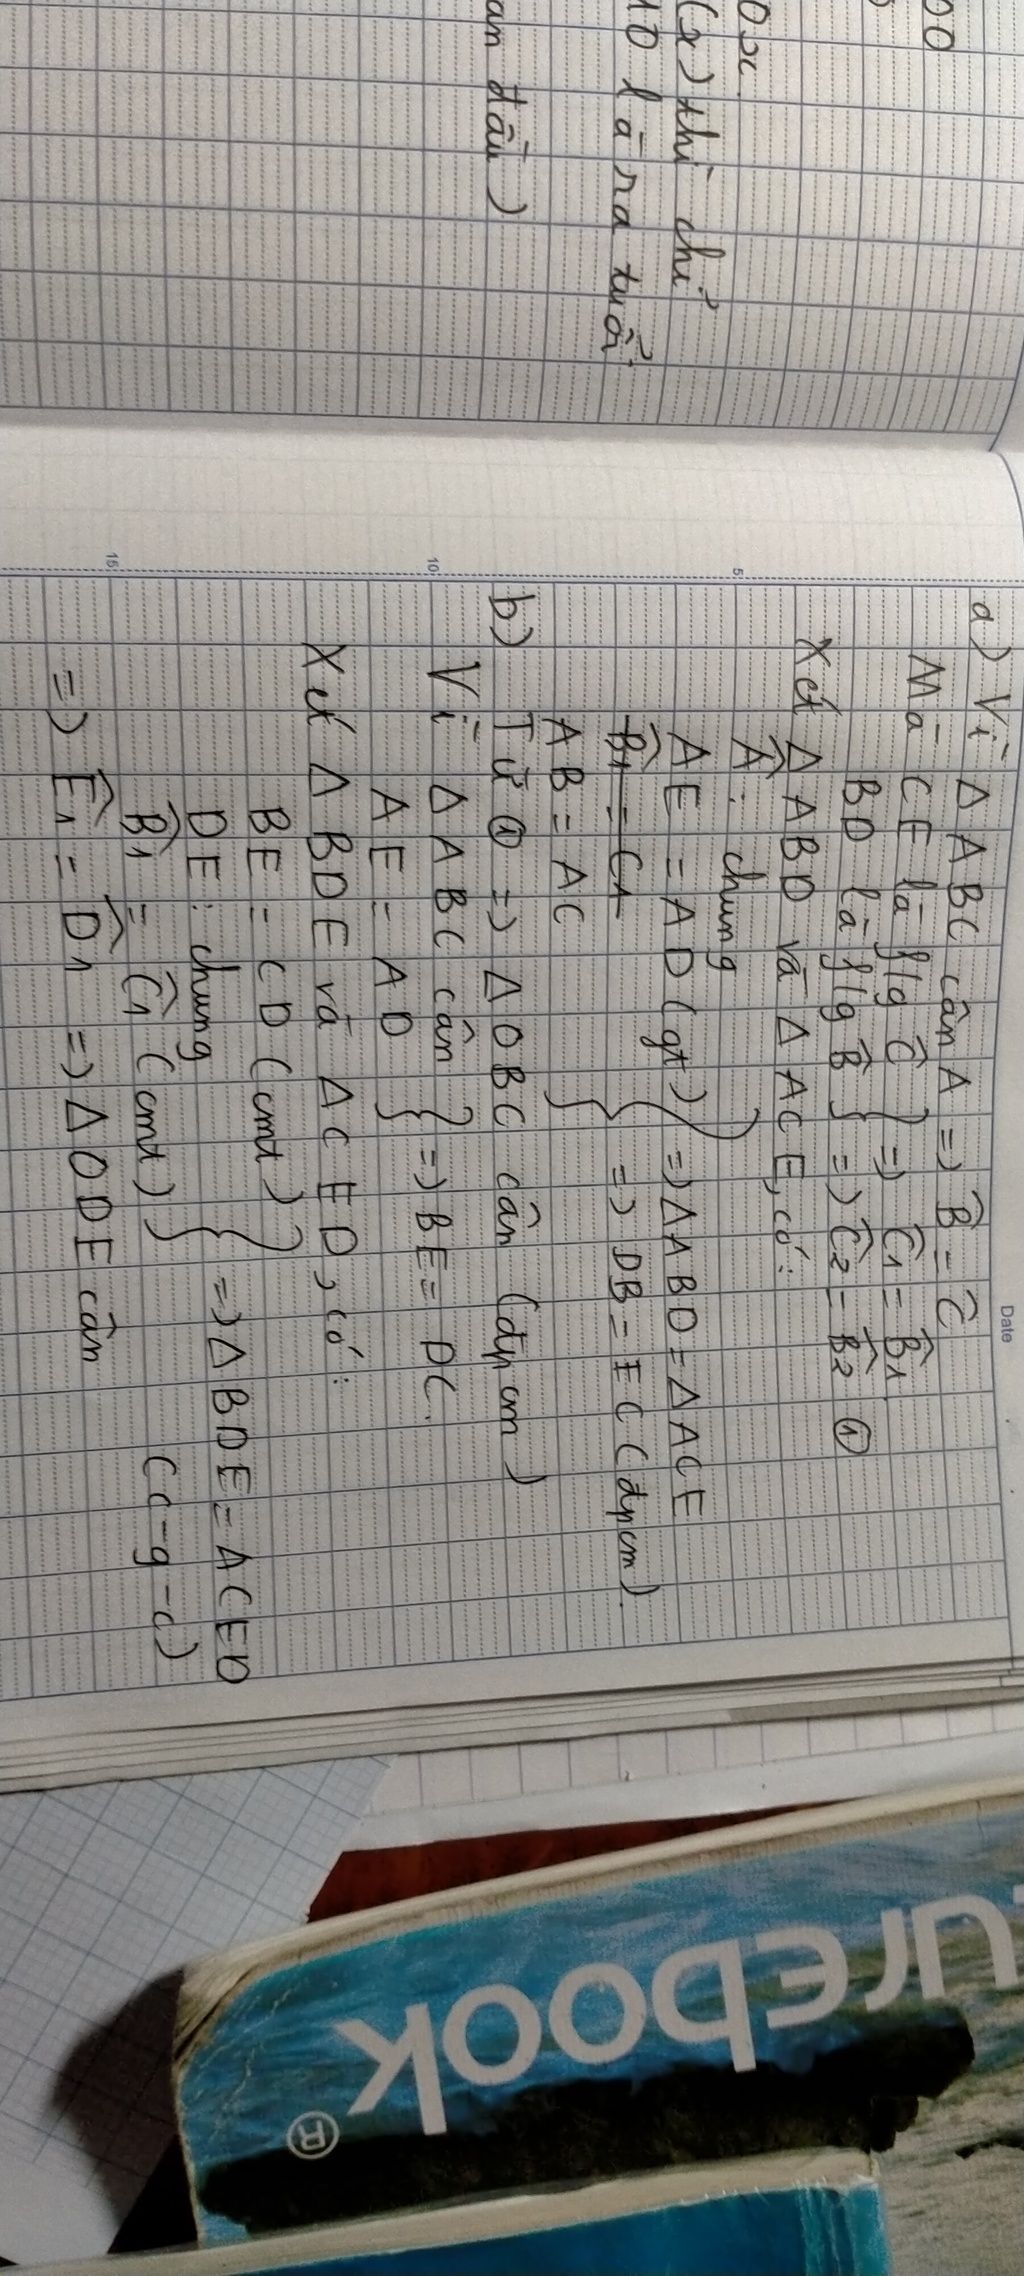 00
0x
(x) thì chỉ
10 là ra tuổi
an đầu)
Date
a) Vì Δ ABC cân A => B̂ = Ĉ
Mà CE là f/g Ĉ } => Ĉ1 = B̂1
BD là f/g B̂ } => Ĉ2 = B̂2 ①
Xét Δ ABD và Δ ACE, có:
5
Â: chung
AE = AD (gt) } => Δ ABD = Δ ACE
B̂1 = Ĉ1
AB = AC } => DB = EC (đpcm).
b) Từ ① => Δ OBC cân (đpcm)
10
Vì Δ ABC cân } => BE = DC.
AE = AD
Xét Δ BDE và Δ CED, có:
BE = CD (cmt)
DE: chung } => Δ BDE = Δ CED
B̂1 = Ĉ1 (cmt) (c-g-c)
15
=> Ê1 = D̂1 => Δ ODE cân
urebook®